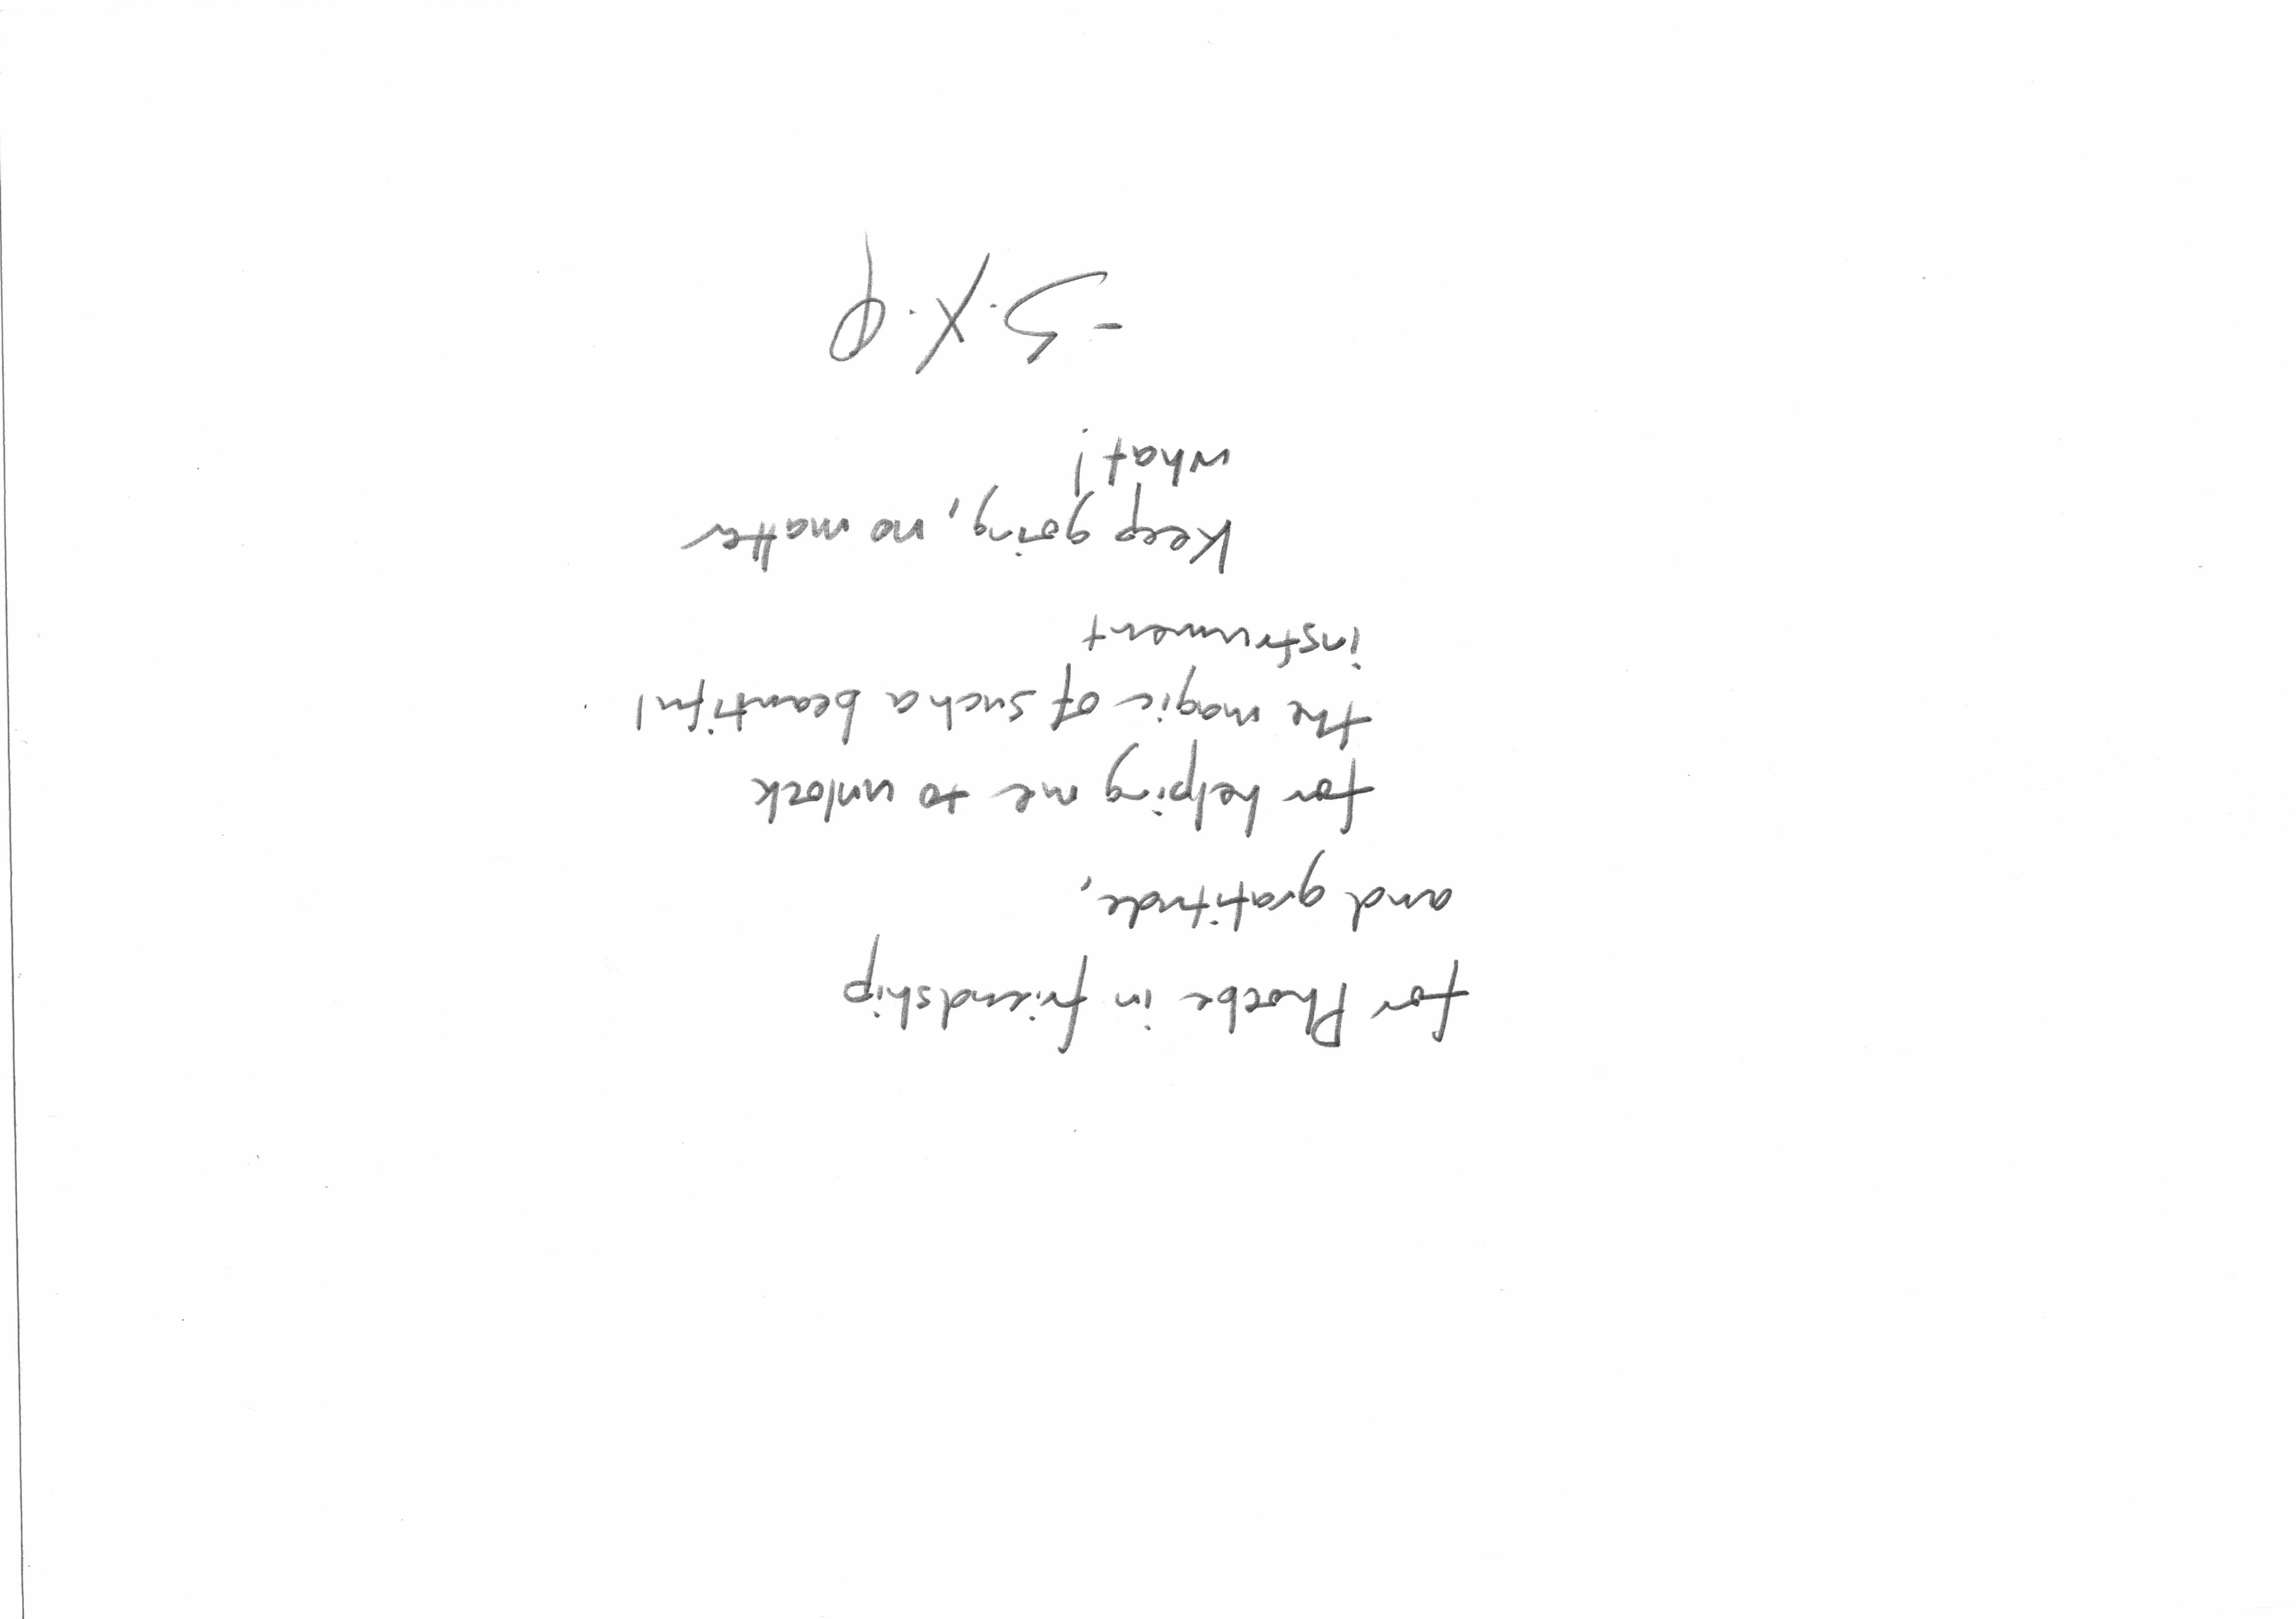 for Phoebe in friendship
and gratitude,
for helping me to unlock
the magic of such a beautiful
instrument
Keep going, no matter
what!
- S.X.